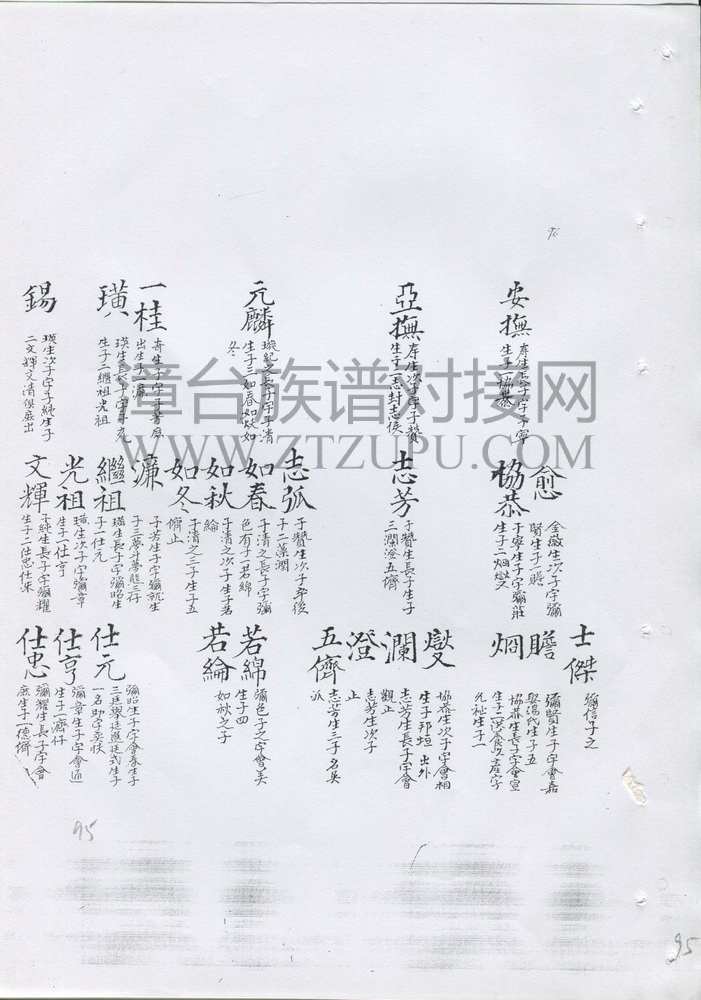 安撫
庠生長子字子寧
生子一協恭
亞撫
庠生次子字子贊
生子二志封志侯
元麟
璇紀之長子字子清
生子三如春如秋如
冬
一桂
奇生子字子芳庶
出生子一濂
璜
瑛生長子字子充
生子二繼祖光祖
錫
瑛生次子字子純生子
二文輝文清俱庶出
愈
金緻生次子字彌
賢生子一瞻
協恭
子寧生子字彌莊
生子二炯燮
志芳
子贊生長子生子
三瀾澄五儕
志弧
子贊生次子卒後
子二藻潤
如春
子清之長子字彌
色有子一若綿
如秋
子清之次子生子若
綸
如冬
子清之三子生子五
儕止
濂
子芳生子字彌就生
子三夢斗夢熊三符
繼祖
璜生長子字彌昭生
子一仕元
光祖
璜生次子字彌章
生子一仕亨
文輝
子純生長子字彌耀
生子二仕忠仕末
士傑
彌信子之
瞻
彌賢生子字會嘉
娶湯氏生子五
炯
協恭生長子字會宣
生子二洪食以產字
元祉生子一
燮
協恭生次子字會桐
生子邦烜 出外
瀾
志芳生長子字會
觀止
澄
志芳生次子
止
五儕
志芳生三子名吳
派
若綿
彌色子之字會美
生子四
若綸
如秋之子
仕元
彌昭生子字會春生子
三廷舉廷進廷武生子
一名助字奕扶
仕亨
彌章生子字會通
生子二濟仔
仕忠
彌耀生長子字會
庶生子一德儕
95
95
章台族谱对接网
WWW.ZTZUPU.COM